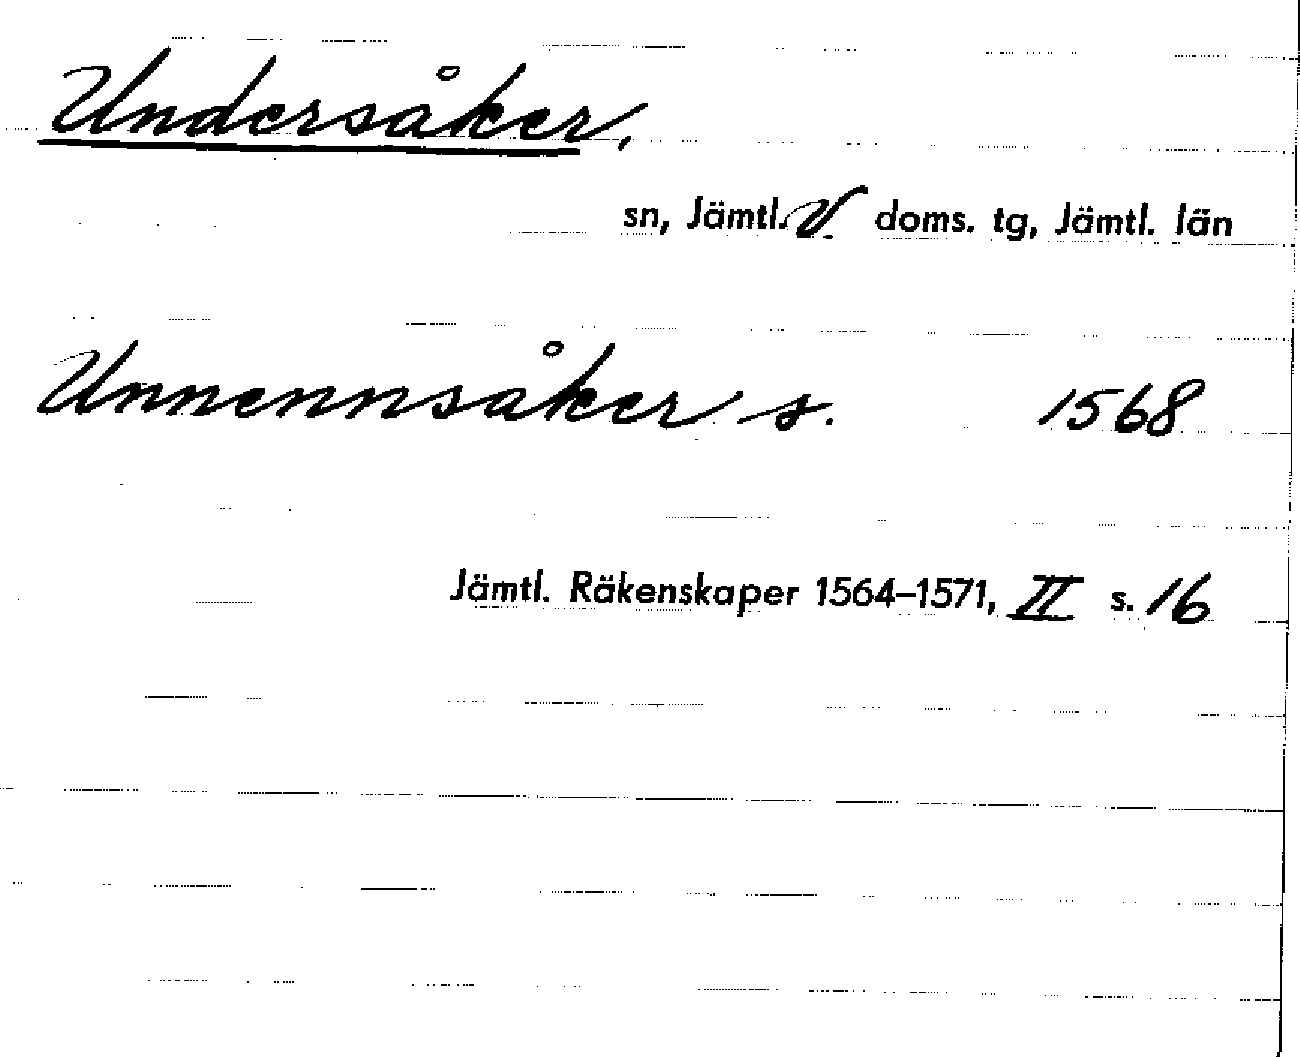 Undersåker,
sn, Jämtl. V. doms. tg, Jämtl. län
Unnennsåker s. 1568
Jämtl. Räkenskaper 1564–1571, II s. 16